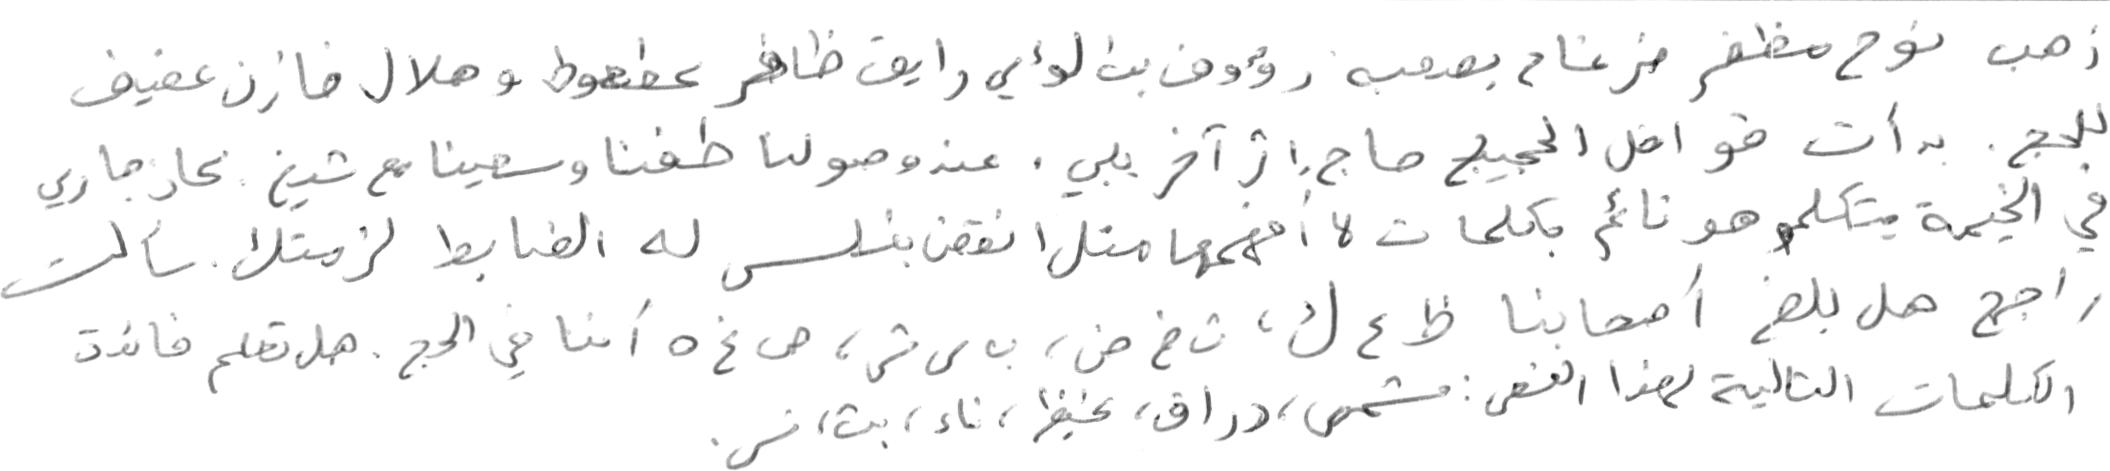 ذهب نوح مظفر ضرغام بصحبة رؤوف بن لؤي رايق ظافر عطعوط و هلال مازن عفيف
للحج. بدأت قوافل الحجيج حاج إثر آخر يلبي. عند وصولنا طفنا وسعينا مع شيخ. نحاز جاري
في الخيمة يتكلم وهو نائم بكلمات لا أفهمها مثل انقض بغلس له الضابط لزميتك. سألت
راجح هل بلغ أصحابنا ظ ع ك، ث خ ض، ب س ش، ص غ ه أننا في الحج. هل تعلم فائدة
الكلمات التالية لهذا النص: مشمس، دراق، غيظ، ناء، بث، نس.